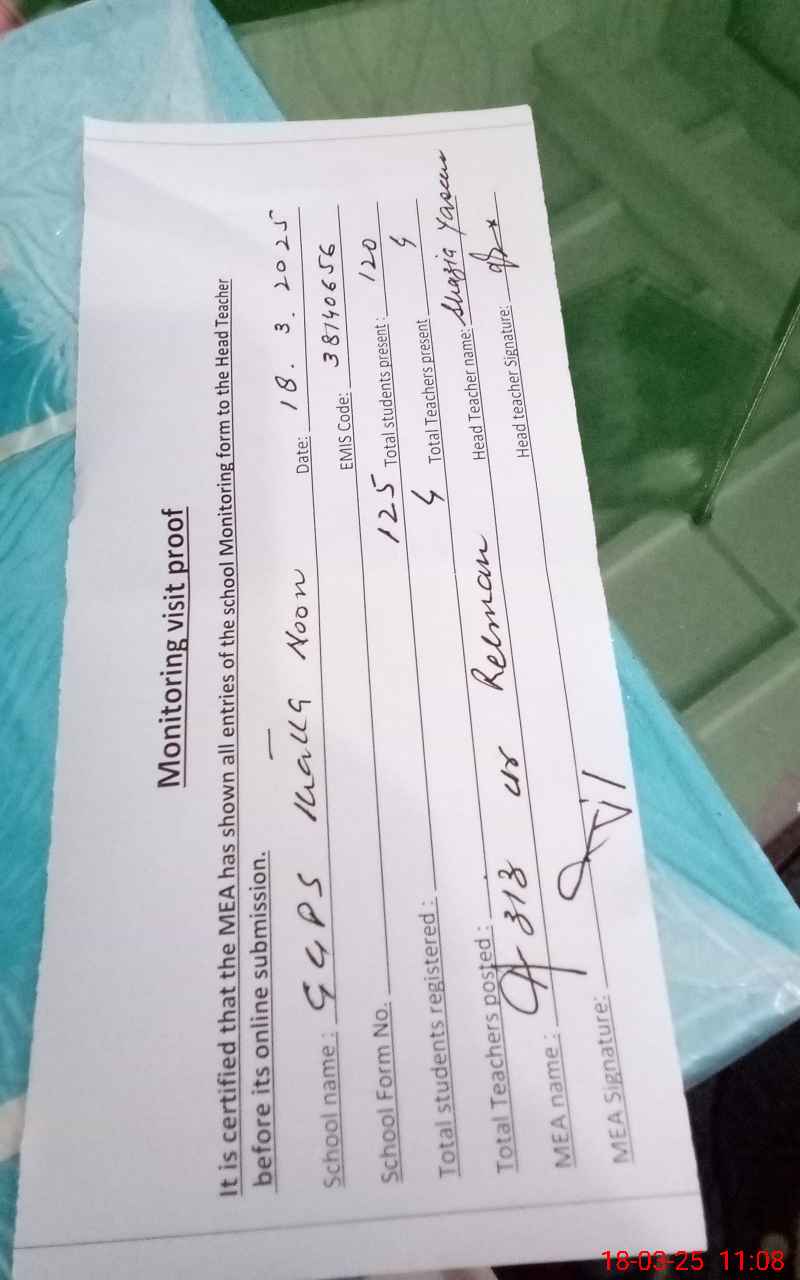 Monitoring visit proof
It is certified that the MEA has shown all entries of the school Monitoring form to the Head Teacher
before its online submission.
School name : GGPS Khalla Noon Date: 18. 3. 2025
School Form No. EMIS Code: 38140656
Total students registered : 125 Total students present : 120
Total Teachers posted : 4 Total Teachers present 4
MEA name : 313 ur Rehman Head Teacher name: Shazia Yaseen
MEA Signature: Head teacher Signature:
18-03-25 11:08